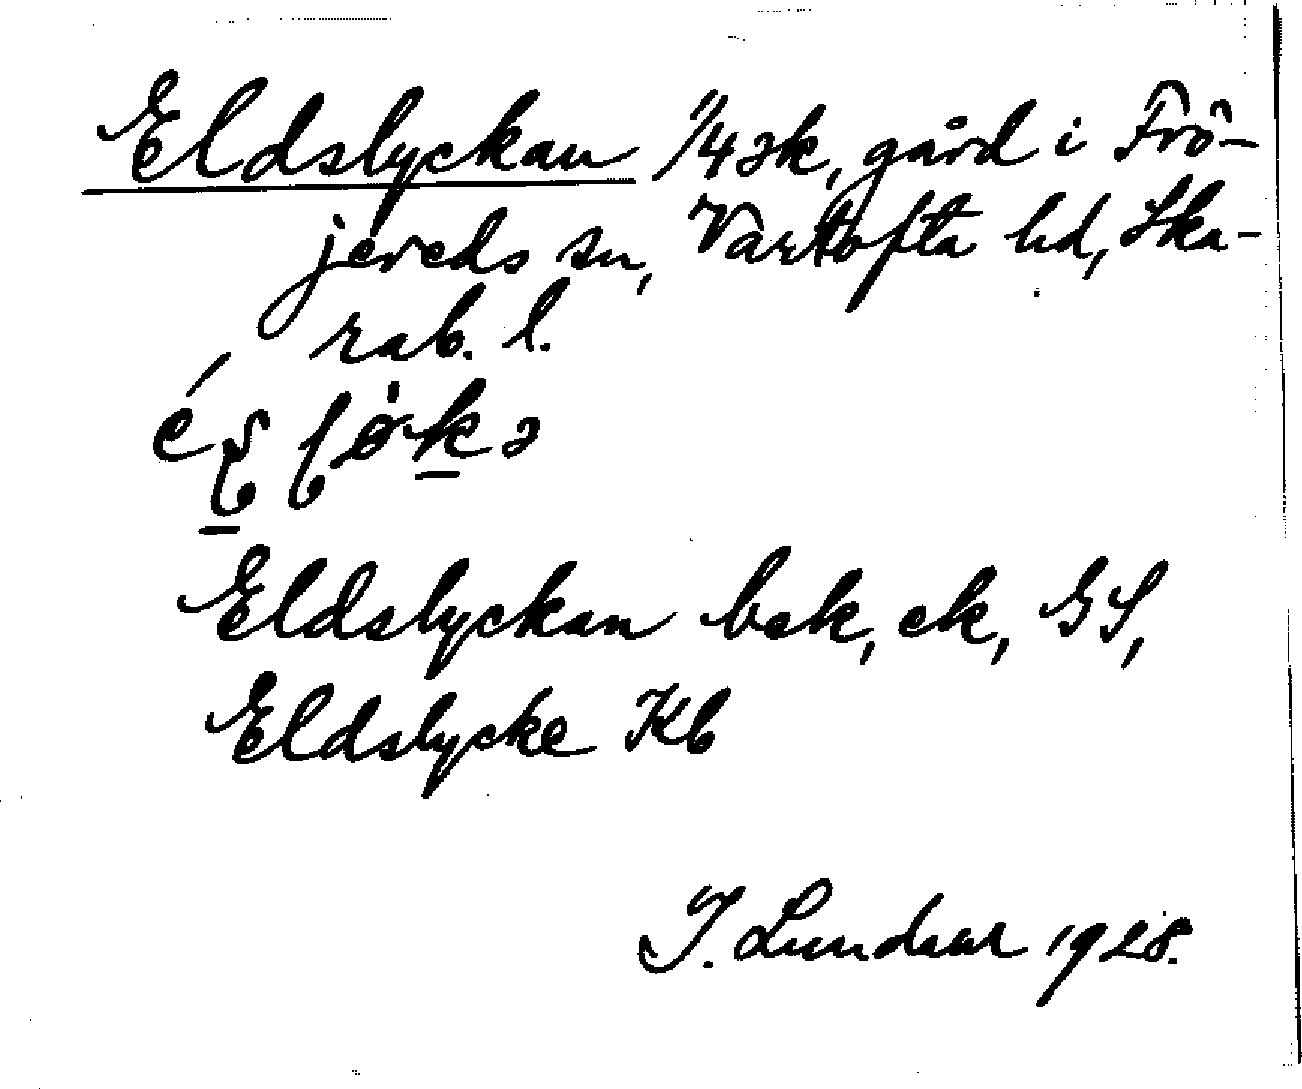 Eldslyckan 1/4 sk, gård i Frö-
jereds sn, Vartofta hd, Ska-
rab. l.
Eldslyckan bek, ek, GS,
Eldslycke Kb
I. Lundahl 1928.